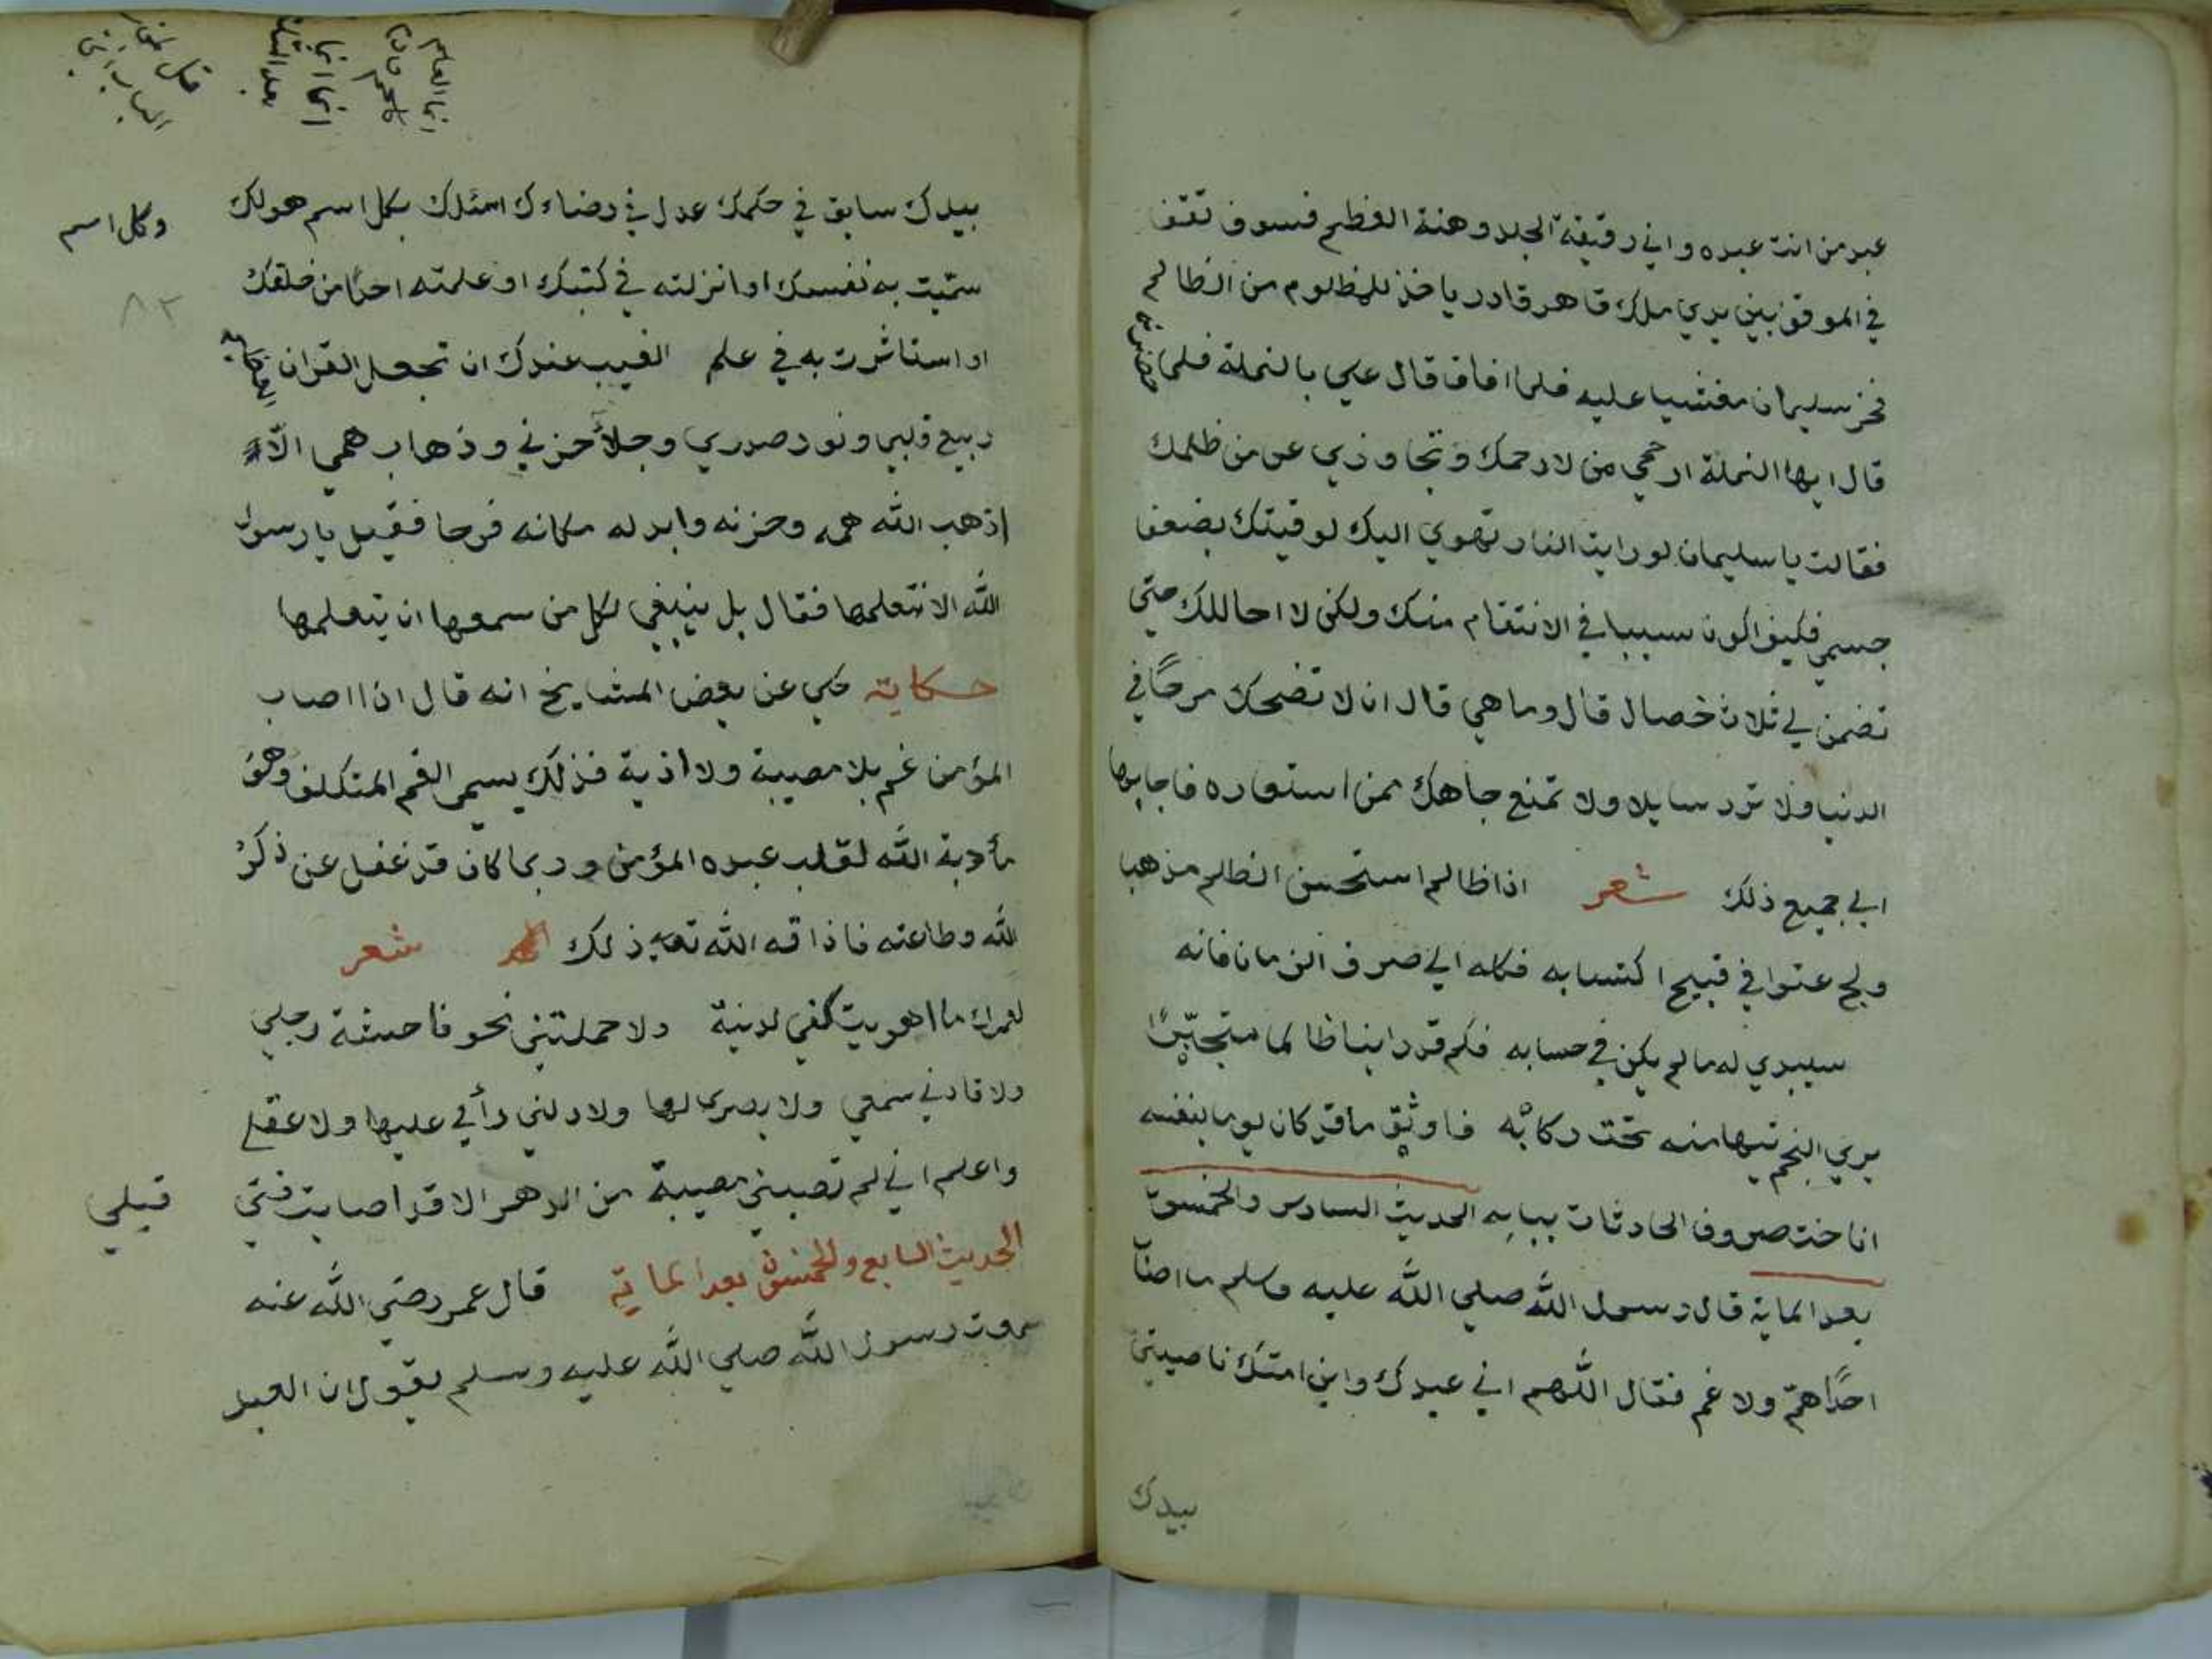 عبد من انت عبده واني رقيقة الجلد وهنة العظم فسوف تقف
في الموقف بين يدي ملك قاهر قادر ياخذ للمظلوم من الظالم
فخر سليمان مغشيا عليه فلما افاق قال علي بالنملة فلما
قال ايها النملة ارحمي من لا رحمك وتجاوزي عن من ظلمك
فقالت يا سليمان لو رايت النار تهوي اليك لوقيتك بضعف
جسمي فكيف اكون سببا في الانتقام منك ولكن لا احاللك حتى
تضمن لي ثلاث خصال قال وما هي قال ان لا تضحك مرحًا في
الدنيا ولا ترد سايلا ولا تمنع جاهك ممن استعاره فاجابها
الي جميع ذلك شعر اذا ظالم استحسن الظالم مذهبا
ولج عتوا في قبيح اكتسابه فكله الي صرف الزمان فانه
سيبدي له ما لم يكن في حسابه فكم قد راينا ظالما متجبّرًا
يري النجم تيها منه تحت ركابه فاوثق ما قد كان يوما بنفسه
اناخت صروف الحادثات ببابه الحديث السادس والخمسون
بعد الماية قال رسول الله صلي الله عليه وسلم ما اصاب
احدًا همّ ولا غم فقال اللهم اني عبدك وابن امتك ناصيتي
بيدك
بيدك سابق في حكمك عدل في قضاءك اسئلك بكل اسم هو لك
وكل اسم
سمّيت به نفسك او انزلته في كتبك او علمته احدًا من خلقك
٨٢
او استاثرت به في علم الغيب عندك ان تجعل القران
ربيع قلبي ونور صدري وجلأ حزني وذهاب همي الّا
اذهب الله همه وحزنه وابدله مكانه فرجا فقيل يا رسول
الله الا نتعلمها فقال بل ينبغي لكل من سمعها ان يتعلمها
حكاية حكي عن بعض المشايخ انه قال اذا اصاب
المؤمن غم بلا مصيبة ولا اذية فذلك يسمي الغم المتكلف وهو
مأدبة الله لقلب عبده المؤمن وربما كان قد غفل عن ذكر
الله وطاعته فاذاقه الله تعالي ذلك شعر
لعمرك ما اهويت كفي لدنية ولا حملتني نحو فاحشة رجلي
ولا قادني سمعي ولا بصري لها ولا دلني رأي عليها ولا عقلي
واعلم اني لم تصبني مصيبة من الدهر الا قد اصابت فتى
قبلي
الحديث السابع والخمسون بعد الماية قال عمر رضي الله عنه
سمعت رسول الله صلي الله عليه وسلم يقول ان العبد